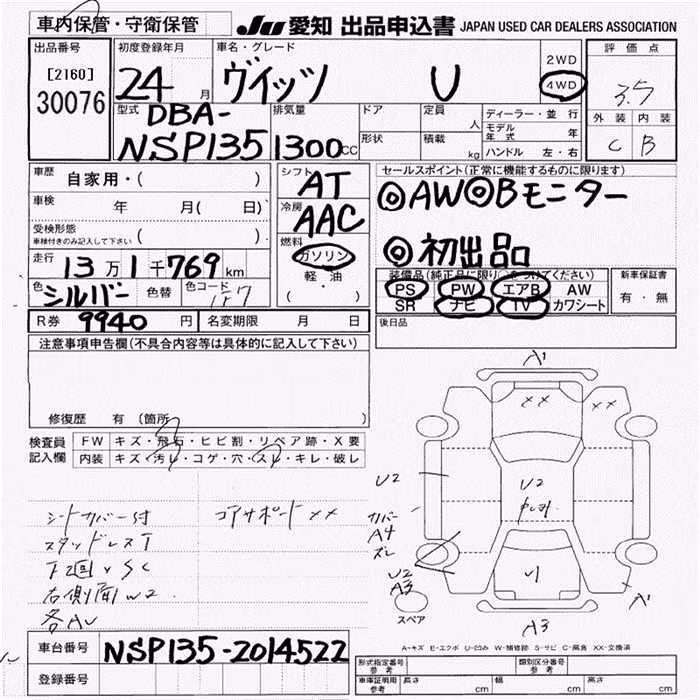 車内保管・守衛保管
JU 愛知 出品申込書 JAPAN USED CAR DEALERS ASSOCIATION
出品番号
[2160]
30076
初度登録年月
24 月
車名・グレード
ヴイッツ U
2WD
4WD
評価点
3.5
外装 内装
C B
型式
DBA-
NSP135
排気量
1300cc
ドア
形状
定員
人
積載
kg
ディーラー・並行
モデル年式 年
ハンドル 左・右
車歴
自家用・( )
車検 年 月( 日)
受検形態
車検付きのみ記入して下さい ( )
走行
13万1千769km
色 シルバー 色替 色コード
シフト
AT
冷房
AAC
燃料
ガソリン
軽・油
( ・ )
セールスポイント(正常に機能するものに限ります)
◎AW◎Bモニター
◎初出品
装備品(純正品に限り○をつけてください)
PS PW エアB AW
SR ナビ TV カワシート
新車保証書
有・無
R券 9940 円 名変期限 月 日
後日品
注意事項申告欄(不具合内容等は具体的に記入して下さい)
修復歴 有(箇所 )
検査員
記入欄
FW キズ・飛石・ヒビ割・リペア跡・X要
内装 キズ・汚レ・コゲ・穴・スレ・キレ・破レ
シートカバー付
スタッドレスT
右側面W2
コアサポートXX
A1
XX
XX
U2
U2
カバー
A4
ズレ
U2
A3
スペア
A1
A3
A-キズ E-エクボ U-凹み W-補修跡 S-サビ C-腐食 XX-交換済
車台番号
NSP135-2014522
登録番号
形式指定番号
参考
類別区分番号
参考
車庫証明用
参考
長さ cm 幅 cm 高さ cm